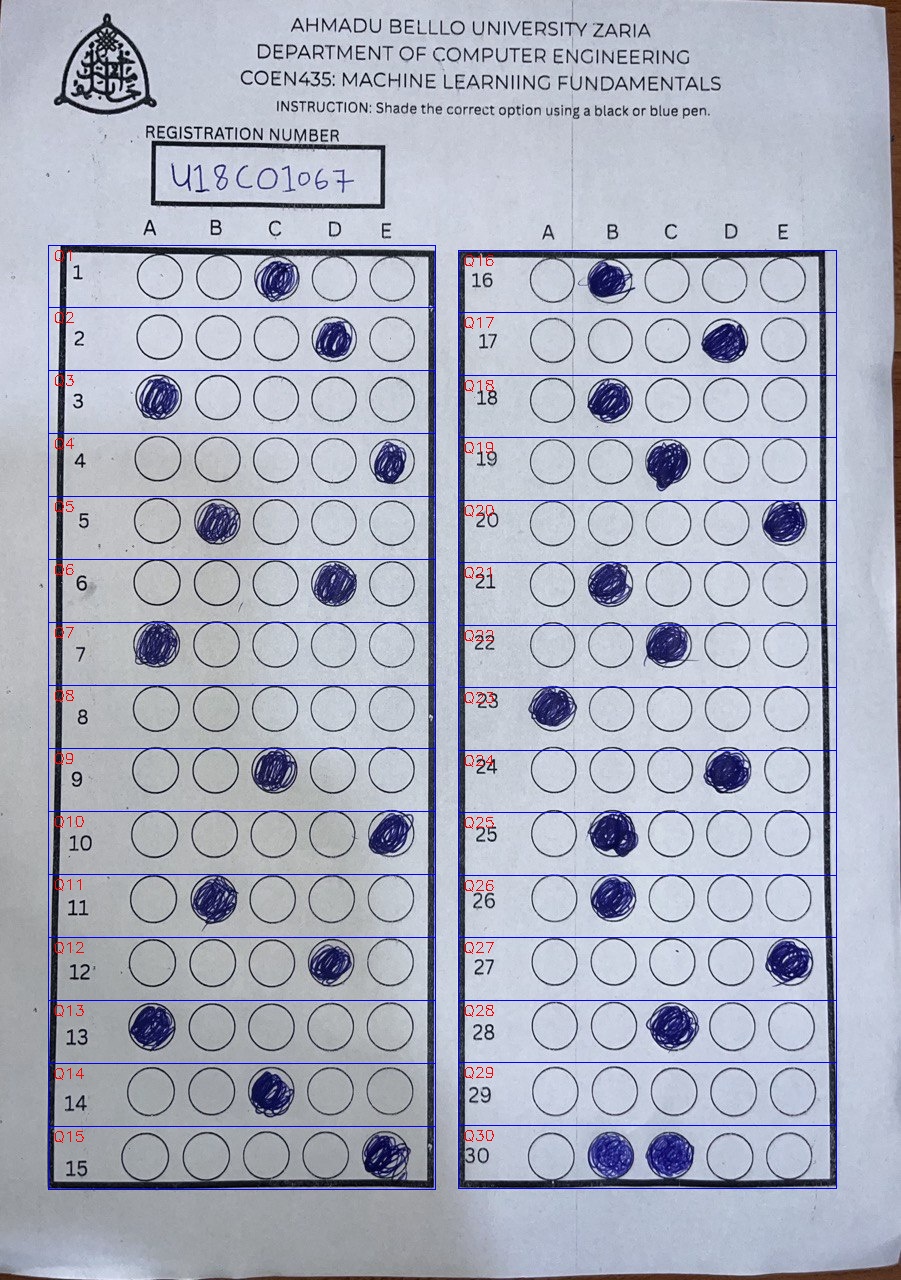 AHMADU BELLLO UNIVERSITY ZARIA
DEPARTMENT OF COMPUTER ENGINEERING
COEN435: MACHINE LEARNIING FUNDAMENTALS
INSTRUCTION: Shade the correct option using a black or blue pen.
REGISTRATION NUMBER
U18CO1067
A B C D E
Q1 1
Q2 2
Q3 3
Q4 4
Q5 5
Q6 6
Q7 7
Q8 8
Q9 9
Q10 10
Q11 11
Q12 12
Q13 13
Q14 14
Q15 15
A B C D E
Q16 16
Q17 17
Q18 18
Q19 19
Q20 20
Q21 21
Q22 22
Q23 23
Q24 24
Q25 25
Q26 26
Q27 27
Q28 28
Q29 29
Q30 30